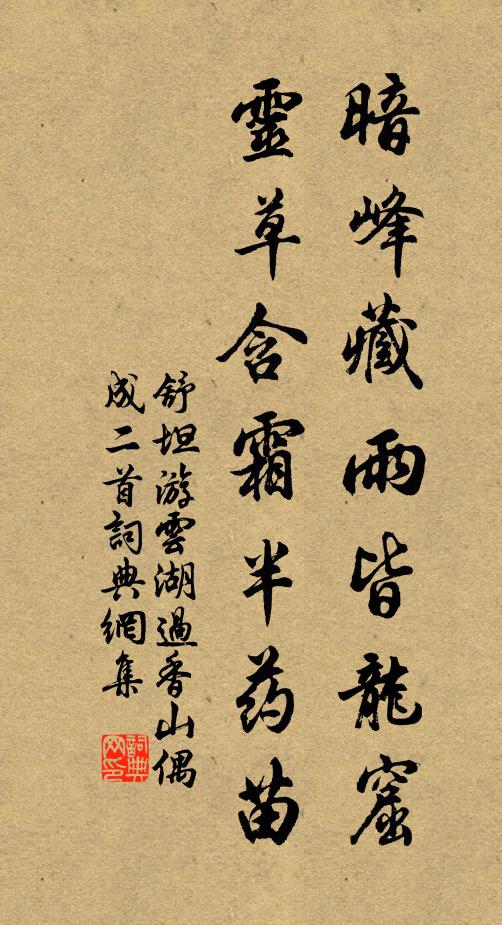 暗峰藏雨皆龍窟
靈草含霜半药苗
舒坦游雲湖過香山偶
成二首詞典網集
詞典網印